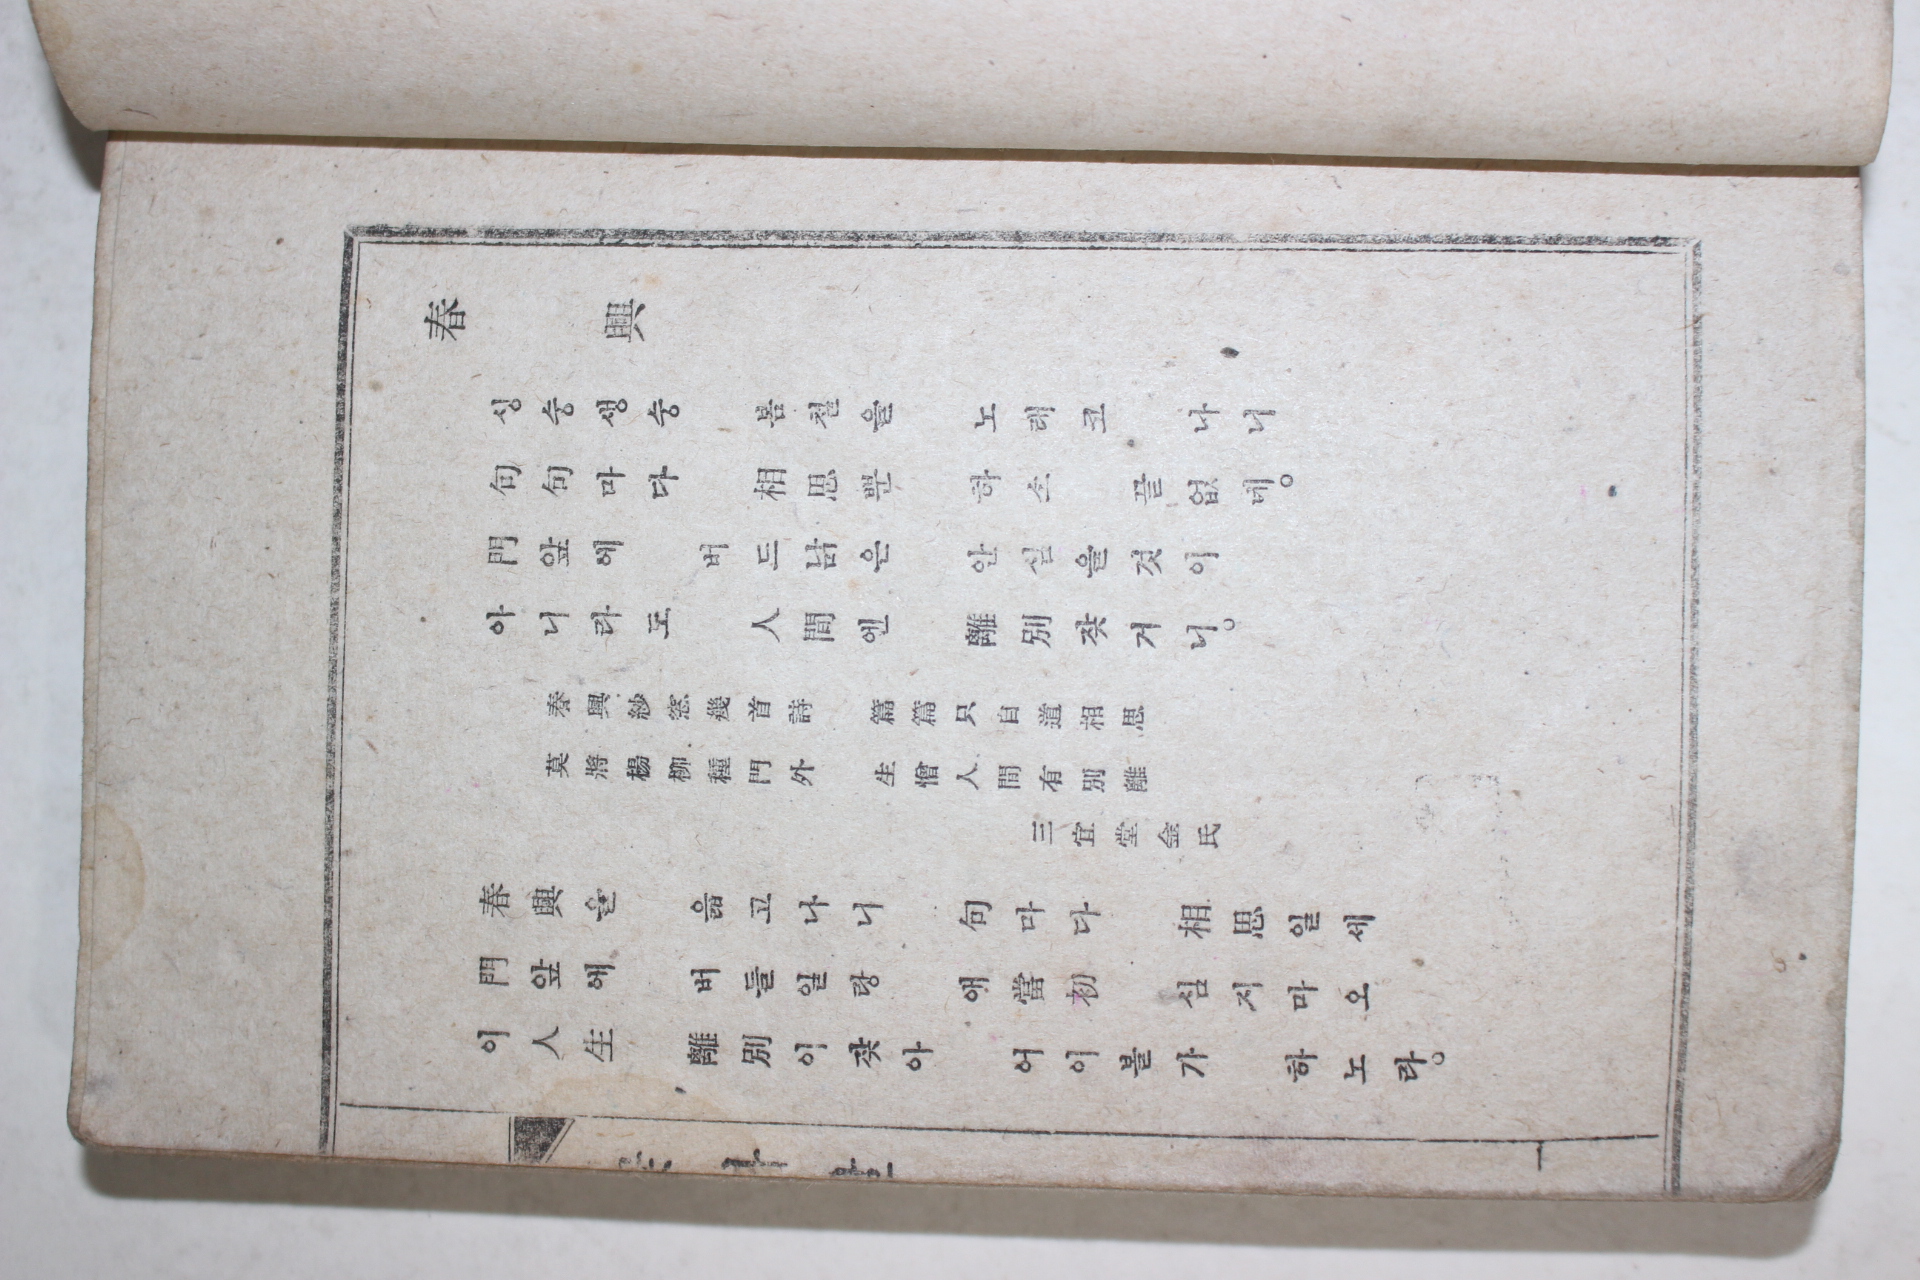 春興
싱숭생숭 봄철을 노래코 나내
句句마다 相思뿐 하소 끝없네。
門앞에 버드남은 안심을것이
아니라도 人間엔 離別잦거니。
春興紗窓幾首詩 篇篇只自道相思
莫將楊柳種門外 生憎人間有別離
三宜堂金氏
春興을 읇고나니 句마다 相思일세
門앞에 버들일랑 애當初 심지마오
이人生 離別이잦아 어이볼가 하노라。